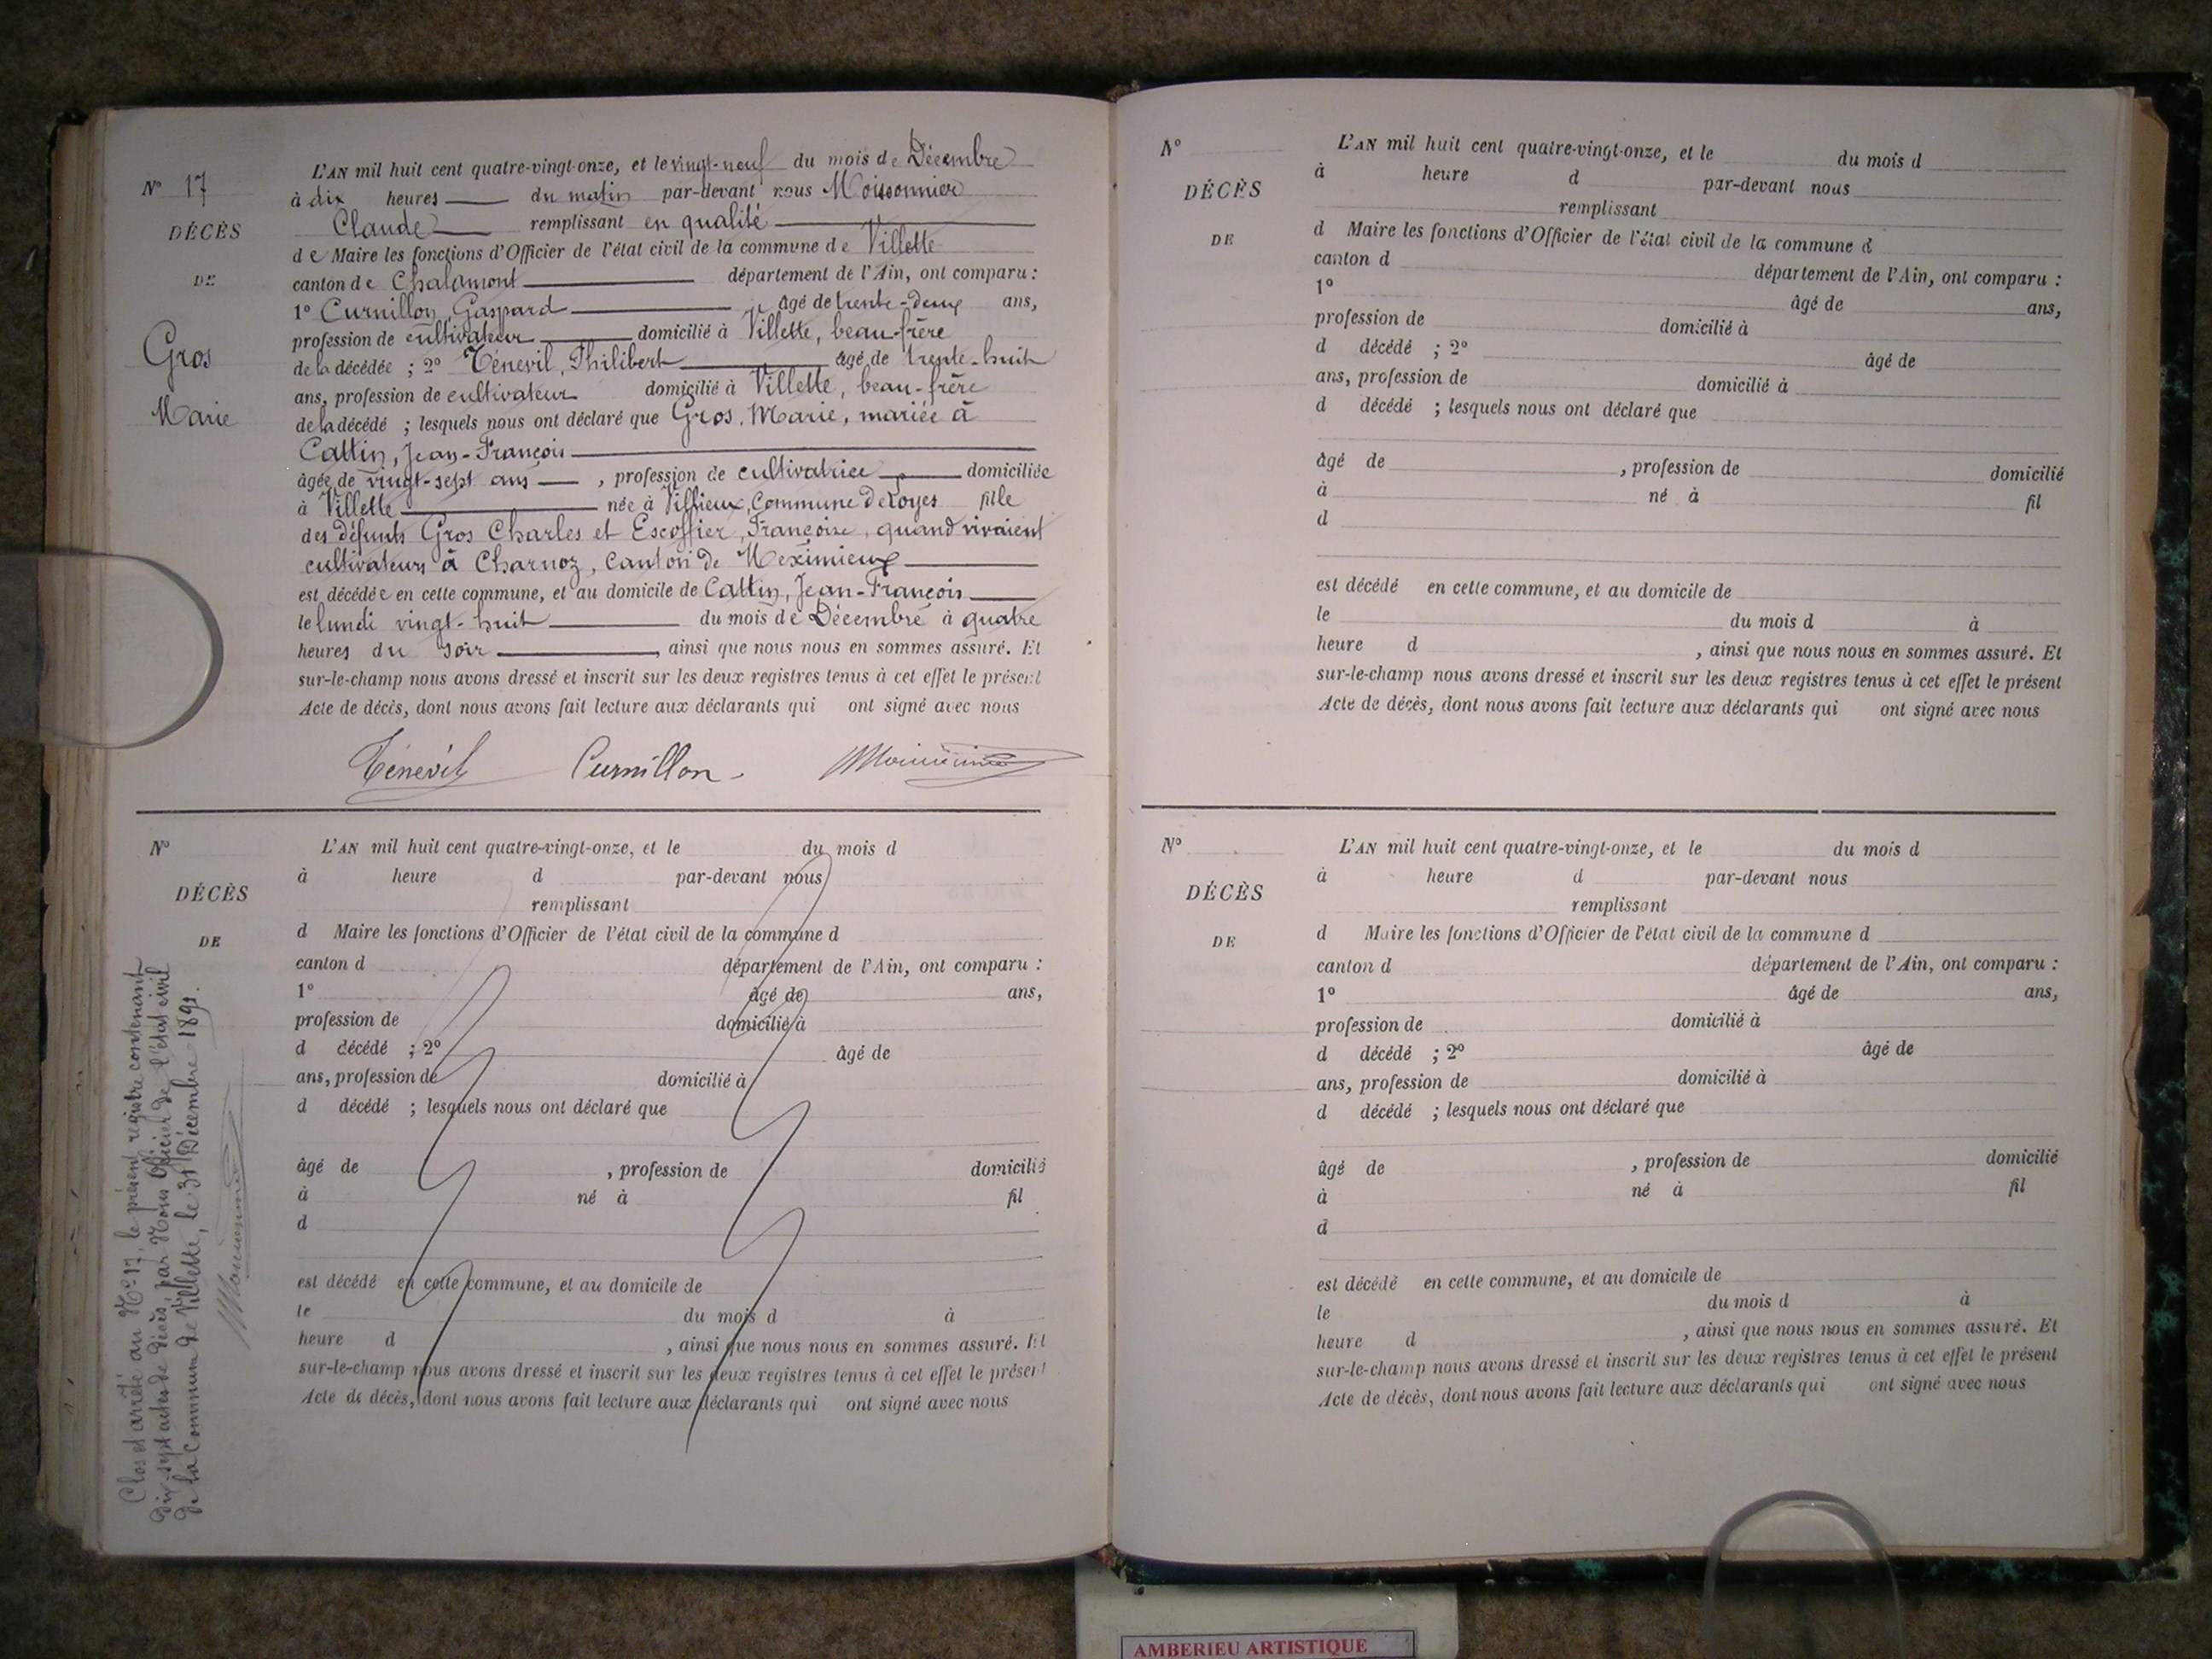 N° 17
DÉCÈS
DE
Gros
Marie
L'AN mil huit cent quatre-vingt-onze, et le vingt-neuf du mois de Décembre
à dix heures du matin par-devant nous Moissonnier
Claude remplissant en qualité
de Maire les fonctions d'Officier de l'état civil de la commune de Villette
canton de Chalamont département de l'Ain, ont comparu :
1° Curnillon, Gaspard âgé de trente-deux ans,
profession de cultivateur domicilié à Villette, beau-frère
de la décédée ; 2° Ténevil, Philibert âgé de trente-huit
ans, profession de cultivateur domicilié à Villette, beau-frère
de la décédé ; lesquels nous ont déclaré que Gros, Marie, mariée à
Cattin, Jean-François
âgée de vingt-sept ans , profession de cultivatrice domiciliée
à Villette née à Villieux, Commune de Loyes fille
des défunts Gros Charles et Escoffier, Françoise, quand vivaient
cultivateurs à Charnoz, Canton de Meximieux
est décédée en cette commune, et au domicile de Cattin, Jean-François
le lundi vingt-huit du mois de Décembre à quatre
heures du soir , ainsi que nous nous en sommes assuré. Et
sur-le-champ nous avons dressé et inscrit sur les deux registres tenus à cet effet le présent
Acte de décès, dont nous avons fait lecture aux déclarants qui ont signé avec nous
Ténevil Curnillon Moissonnier
N°
DÉCÈS
DE
L'AN mil huit cent quatre-vingt-onze, et le du mois d
à heure d par-devant nous
remplissant
d Maire les fonctions d'Officier de l'état civil de la commune d
canton d département de l'Ain, ont comparu :
1° âgé de ans,
profession de domicilié à
d décédé ; 2° âgé de
ans, profession de domicilié à
d décédé ; lesquels nous ont déclaré que
âgé de , profession de domicilié
à né à fil
d
est décédé en cette commune, et au domicile de
le du mois d à
heure d , ainsi que nous nous en sommes assuré. Et
sur-le-champ nous avons dressé et inscrit sur les deux registres tenus à cet effet le présent
Acte de décès, dont nous avons fait lecture aux déclarants qui ont signé avec nous
Clos et arrêté au N° 17, le présent registre contenant
dix-sept actes de décès, par Nous Officier de l'état civil
de la Commune de Villette, le 31 Décembre 1891.
Moissonnier
N°
DÉCÈS
DE
L'AN mil huit cent quatre-vingt-onze, et le du mois d
à heure d par-devant nous
remplissant
d Maire les fonctions d'Officier de l'état civil de la commune d
canton d département de l'Ain, ont comparu :
1° âgé de ans,
profession de domicilié à
d décédé ; 2° âgé de
ans, profession de domicilié à
d décédé ; lesquels nous ont déclaré que
âgé de , profession de domicilié
à né à fil
d
est décédé en cette commune, et au domicile de
le du mois d à
heure d , ainsi que nous nous en sommes assuré. Et
sur-le-champ nous avons dressé et inscrit sur les deux registres tenus à cet effet le présent
Acte de décès, dont nous avons fait lecture aux déclarants qui ont signé avec nous
N°
DÉCÈS
DE
L'AN mil huit cent quatre-vingt-onze, et le du mois d
à heure d par-devant nous
remplissant
d Maire les fonctions d'Officier de l'état civil de la commune d
canton d département de l'Ain, ont comparu :
1° âgé de ans,
profession de domicilié à
d décédé ; 2° âgé de
ans, profession de domicilié à
d décédé ; lesquels nous ont déclaré que
âgé de , profession de domicilié
à né à fil
d
est décédé en cette commune, et au domicile de
le du mois d à
heure d , ainsi que nous nous en sommes assuré. Et
sur-le-champ nous avons dressé et inscrit sur les deux registres tenus à cet effet le présent
Acte de décès, dont nous avons fait lecture aux déclarants qui ont signé avec nous
AMBERIEU ARTISTIQUE